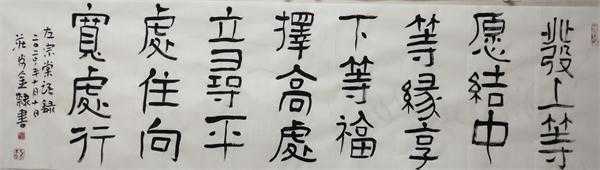 發上等
愿結中
等緣享
下等福
擇高處
立尋平
處住向
寬處行
左宗棠語録
二〇二〇年十月十日
莊金隸書